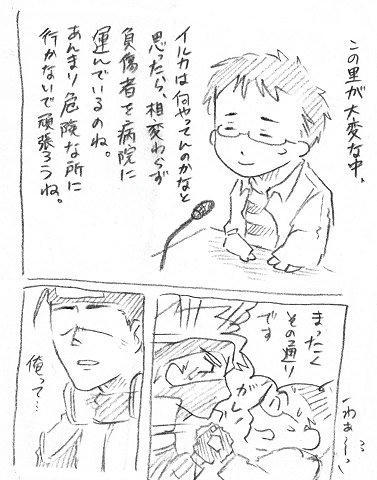 この里が大変な中、
イルカは何やってんのかなと
思ったら、相変わらず
負傷者を病院に
運んでいるのね。
あんまり危険な所に
行かないで頑張ろうね。
まったく
その通り
です
わぁ〜っ
俺って…